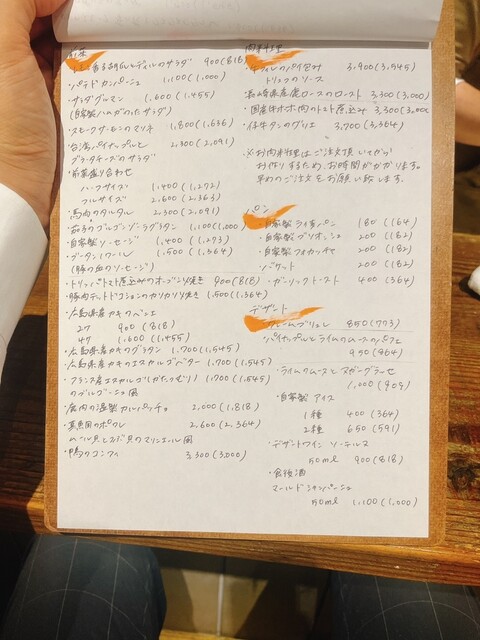 前菜
香る胡瓜とディルのサラダ 900(818)
・パテドカンパーニュ 1,100(1,000)
・サラダグルマン 1,600(1,455)
(自家製ハムがのったサラダ)
・スモークサーモンのマリネ 1,800(1,636)
・台湾パイナップルと 2,300(2,091)
ブッラータチーズのサラダ
・前菜盛り合わせ
ハーフサイズ 1,400(1,272)
フルサイズ 2,600(2,363)
・馬肉のタルタル 2,300(2,091)
・茄子のブルゴンゾーラグラタン 1,100(1,000)
・自家製ソーセージ 1,400(1,273)
・ブータンノワール 1,500(1,364)
(豚の血のソーセージ)
・トリッパトマト煮込みのオーブン焼き 900(818)
・豚肉と コションのカリカリ焼き 1,500(1,364)
・広島県産カキのベニエ
2ケ 900(818)
4ケ 1,600(1,455)
・広島県産カキのグラタン 1,700(1,545)
・広島県産カキのエスカルゴバター 1,700(1,545)
・フランス産エスカルゴ(かたつむり) 1,700(1,545)
のブルゴーニュ風
・鹿肉の燻製カルパッチョ 2,000(1,818)
・真鯛のポワレ 2,600(2,364)
ムール貝と 貝のマリニエール風
・鴨のコンフィ 3,300(3,000)
肉料理
・牛フィレのパイ包み 3,900(3,545)
トリュフのソース
・長崎県産鹿ロースのロースト 3,300(3,000)
・国産牛ホホ肉のトマト煮込み 3,300(3,000
・仔牛タンのグリエ 3,700(3,364)
※お肉料理はご注文頂いてから
お作りするため、お時間がかかります。
早めのご注文をお願い致します。
パン
・自家製ライ麦パン 180(164)
・自家製ブリオッシュ 200(182)
・自家製フォカッチャ 200(182)
・バゲット 200(182)
・ガーリックトースト 400(364)
デザート
クレームブリュレ 850(773)
・パイナップルとライムのムースのパフェ
950(864)
・ライムのムースとマンゴーグラッセ
1,000(909)
・自家製アイス
1種 400(364)
2種 650(591)
・デザートワイン ソーテルヌ
50ml 900(818)
・食後酒
マールドシャンパーニュ
50ml 1,100(1,000)